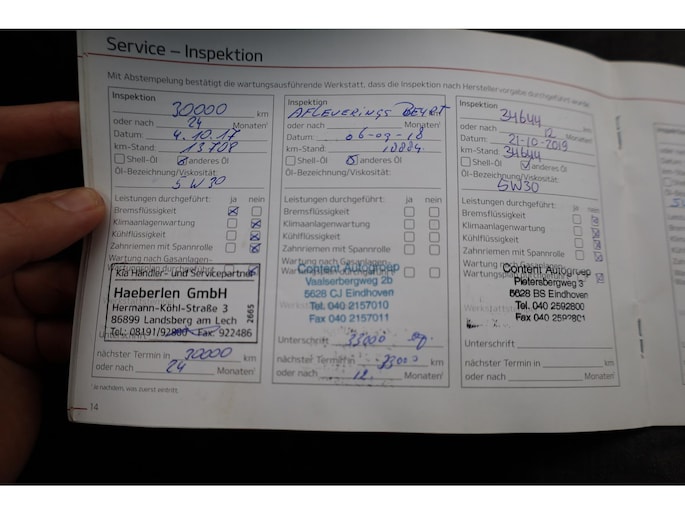 Service – Inspektion
Mit Abstempelung bestätigt die wartungsausführende Werkstatt, dass die Inspektion nach Herstellervorgabe durchgeführt wurde
Inspektion
30000 km
oder nach 24 Monaten¹
Datum: 4.10.17
km-Stand: 13708
Shell-Öl anderes Öl
Öl-Bezeichnung/Viskosität:
5W30
Leistungen durchgeführt: ja nein
Bremsflüssigkeit
Klimaanlagenwartung
Kühlflüssigkeit
Zahnriemen mit Spannrolle
Wartung nach Gasanlagen-
Kia Händler- und Servicepartner
Haeberlen GmbH
Hermann-Köhl-Straße 3
86899 Landsberg am Lech
Tel.: 08191/92800 · Fax: 922486
2665
Unterschrift
nächster Termin in 30000 km
oder nach 24 Monaten¹
Inspektion
AFLEVERINGS BEURT
oder nach Monaten¹
Datum: 06-09-18
km-Stand:
Shell-Öl anderes Öl
Öl-Bezeichnung/Viskosität:
Leistungen durchgeführt: ja nein
Bremsflüssigkeit
Klimaanlagenwartung
Kühlflüssigkeit
Zahnriemen mit Spannrolle
Wartung nach Gasanlagen-
Content Autogroep
Vaalserbergweg 2b
5628 CJ Eindhoven
Tel. 040 2157010
Fax 040 2157011
Unterschrift 33000
nächster Termin in 33000 km
oder nach 12 Monaten¹
Inspektion
34644 km
oder nach 12 Monaten¹
Datum: 21-10-2019
km-Stand: 34644
Shell-Öl anderes Öl
Öl-Bezeichnung/Viskosität:
5W30
Leistungen durchgeführt: ja nein
Bremsflüssigkeit
Klimaanlagenwartung
Kühlflüssigkeit
Zahnriemen mit Spannrolle
Wartung nach Gasanlagen-
Content Autogroep
Pietersbergweg 3
5628 BS Eindhoven
Tel. 040 2592800
Fax 040 2592801
Unterschrift
nächster Termin in km
oder nach Monaten¹
¹ Je nachdem, was zuerst eintritt
14